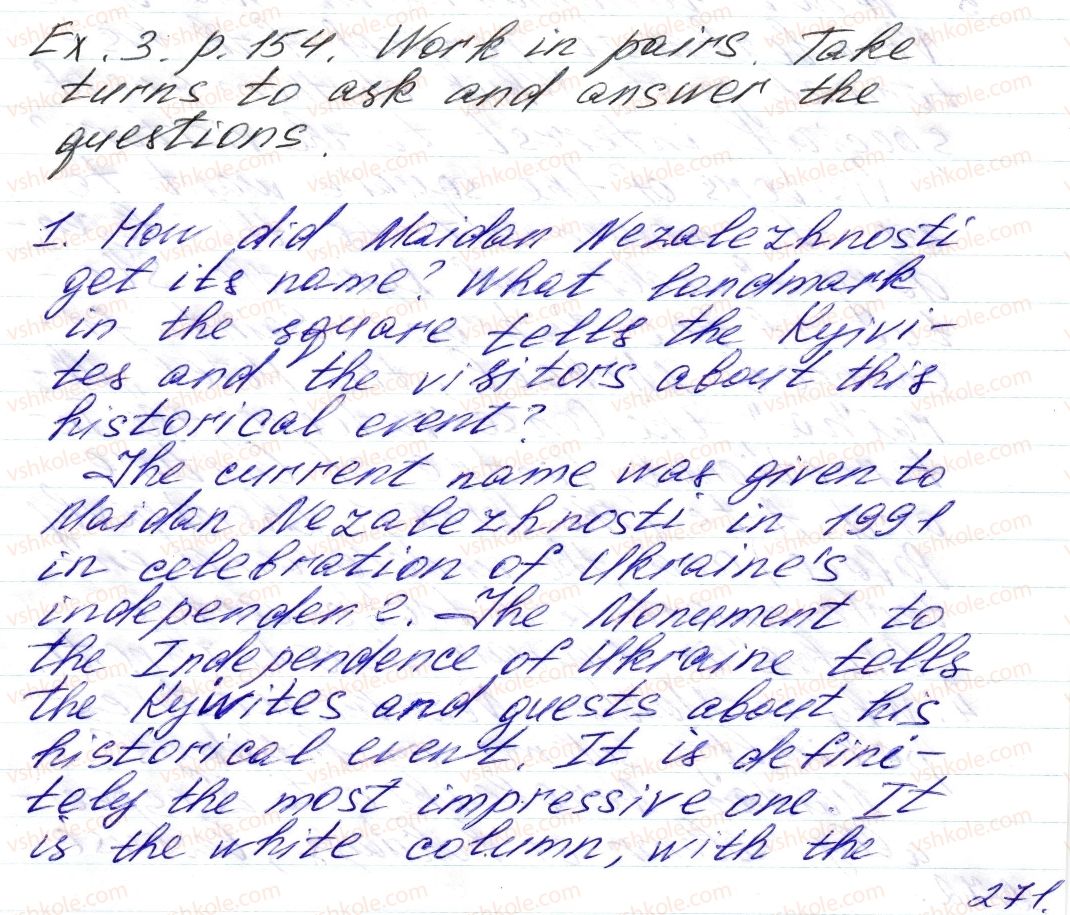 Ex. 3. p. 154. Work in pairs. Take
turns to ask and answer the
questions.
1. How did Maidan Nezalezhnosti
get its name? What landmark
in the square tells the Kyivi-
tes and the visitors about this
historical event?
The current name was given to
Maidan Nezalezhnosti in 1991
in celebration of Ukraine's
independen e. The Monument to
the Independence of Ukraine tells
the Kyivites and guests about his
historical event. It is defini-
tely the most impressive one. It
is the white column, with the
271.